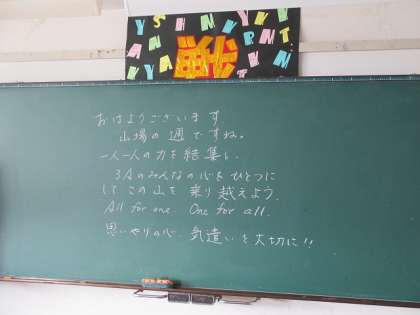 おはようございます。
山場の週ですね。
一人一人の力を結集し、
3Aのみんなの心をひとつに
して この山を 乗り越えよう.
All for one. One for all.
思いやりの心、気遣いを大切に!!